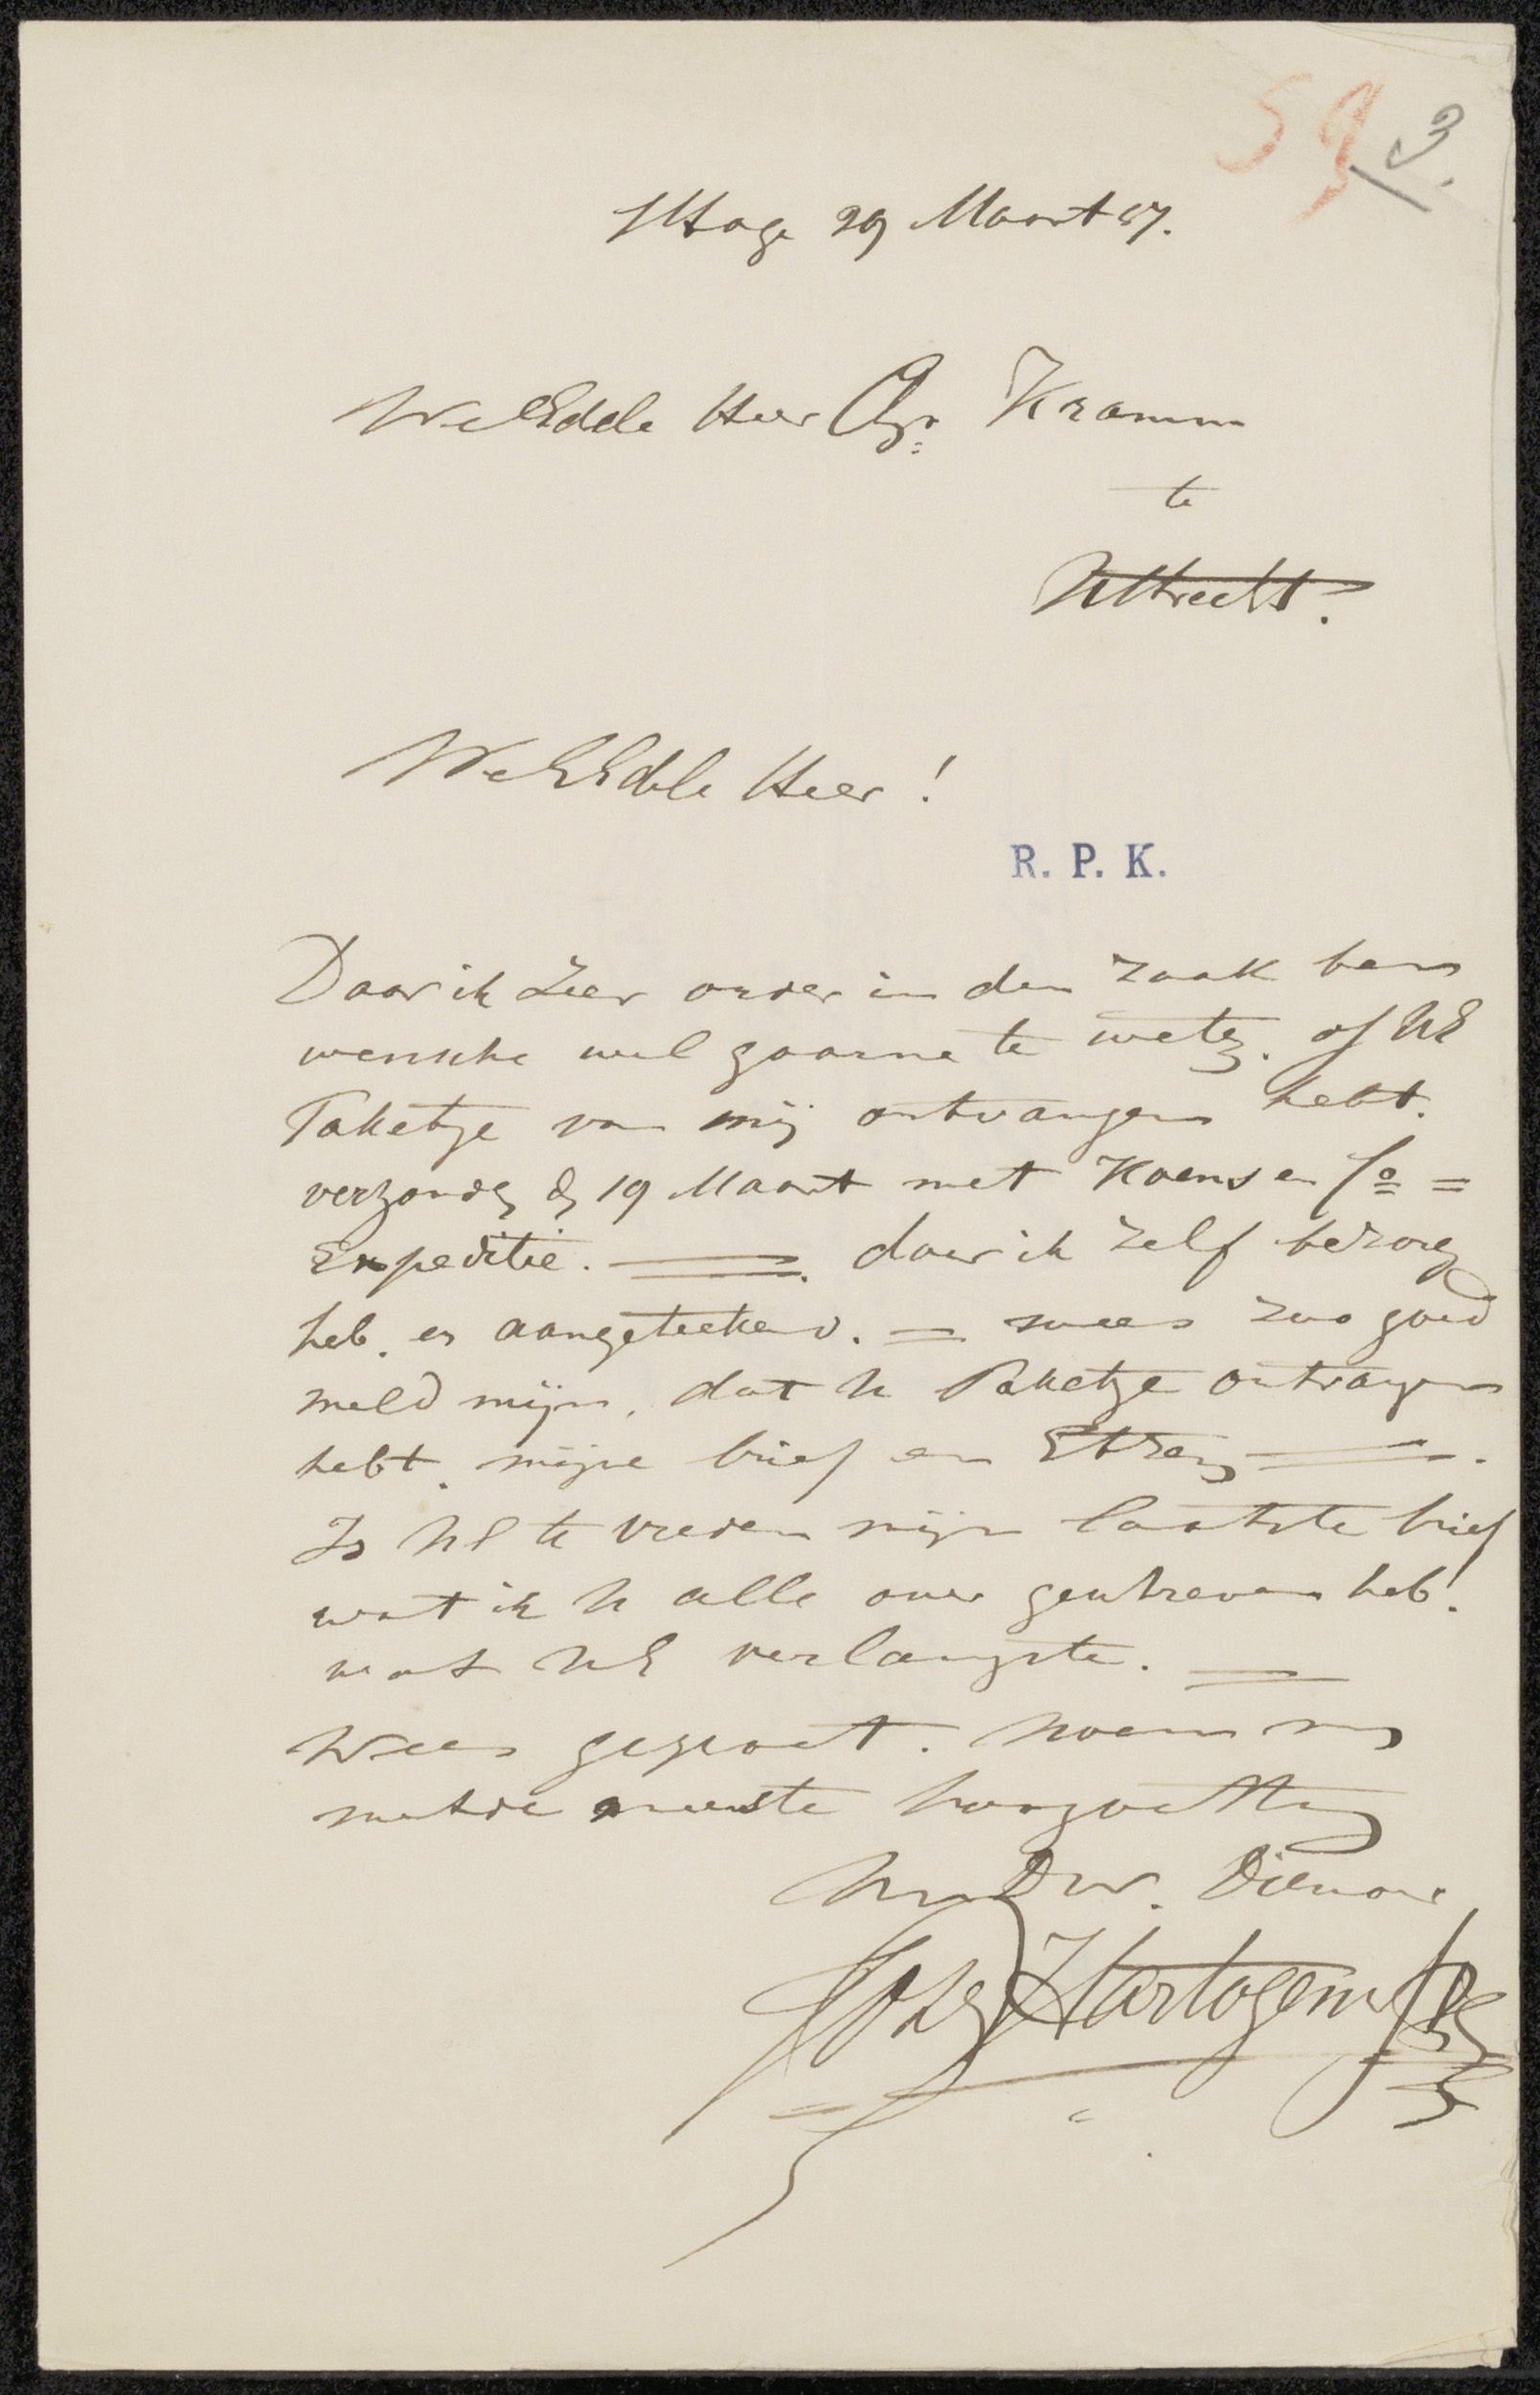 59 3.
s'Hage 29 Maart 57.
WelEdele Heer Chr. Kramm
te
Uttrecht.
WelEdele Heer!
R. P. K.
Daar ik zeer onder in den zaak ben
wensche wel gaarne te weten. of UE
Paketje van mij ontvangen hebt.
verzonden den 19 Maart met Koens en Co =
Expeditie. door ik zelf bezorg
heb. en aangeteekend. = wees zoo goed
meld mijn, dat U Paketje ontvangen
hebt. mijne brief en Etzen
Is UE te vreden mijn laatste brief
wat ik U alle over geschreven heb!
wat UE verlangste.
Wees gegroet. noem mij
met de meeste hoogachting
Uw Dw. Dienare
Joseph Hartogensis